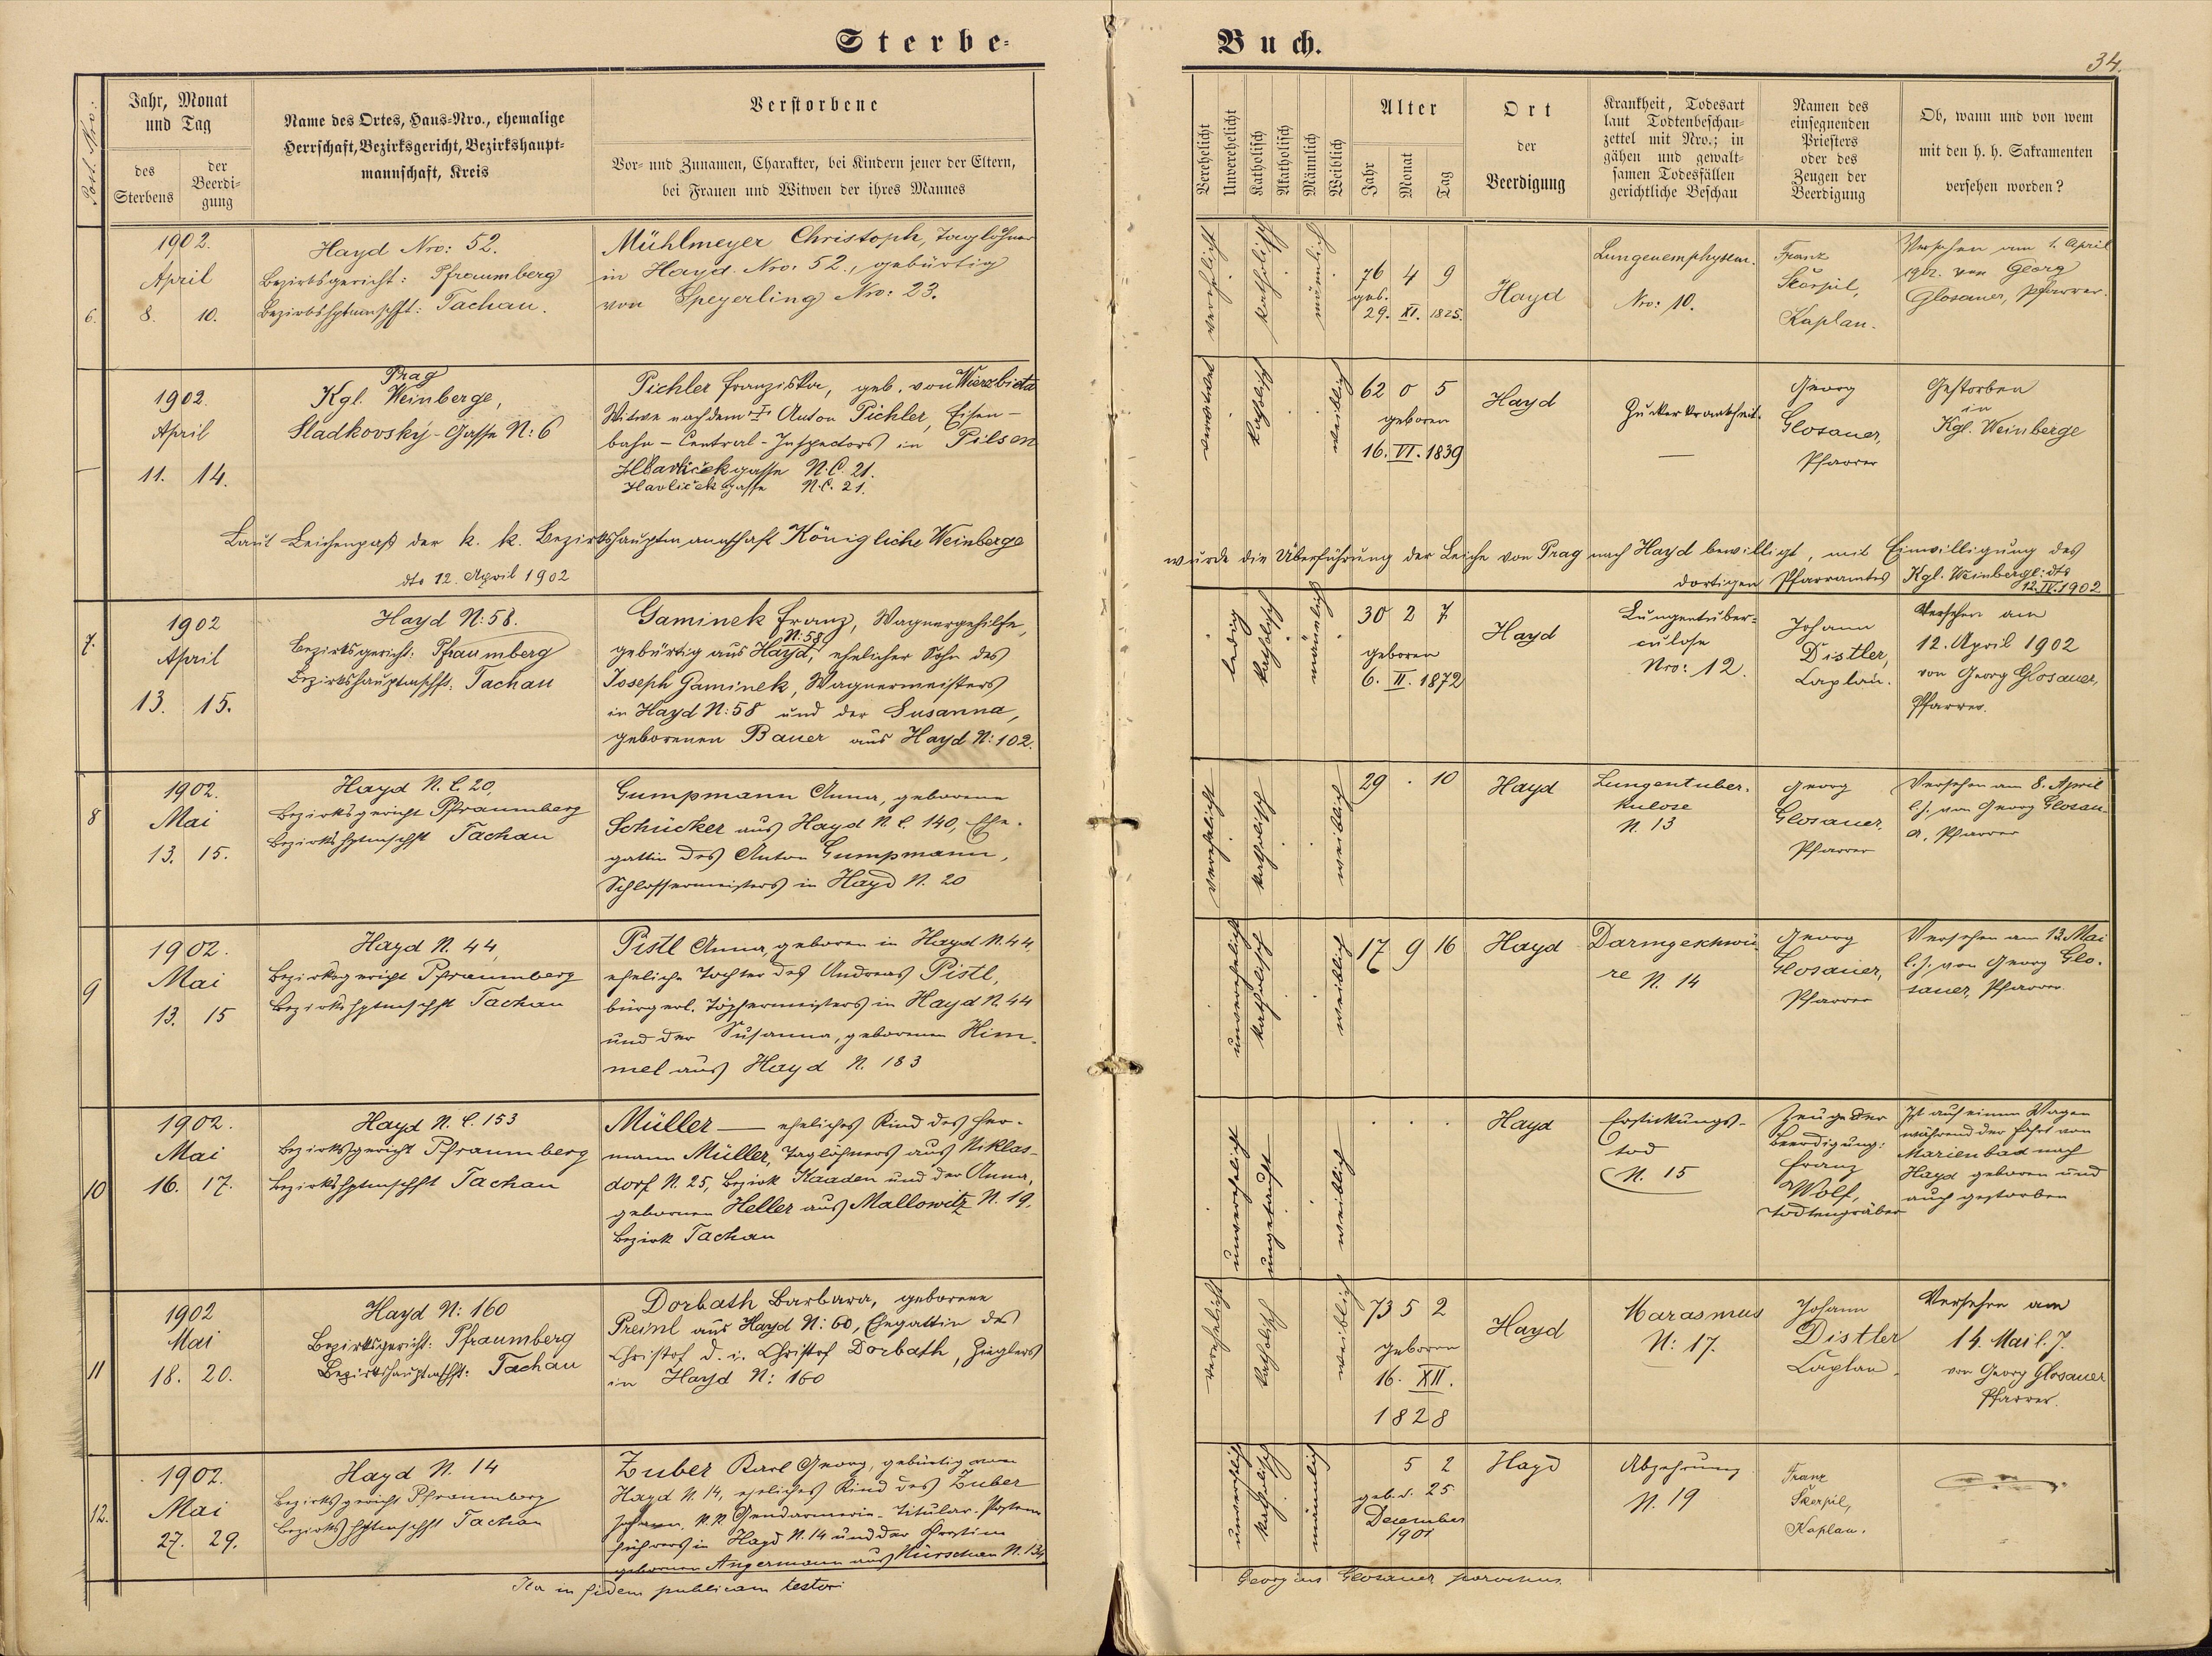 Sterbe-
Buch.
34.
Post. Nro:
Jahr, Monat
und Tag
des
Sterbens
der
Beerdi-
gung
Name des Ortes, Haus-Nro., ehemalige
Herrschaft, Bezirksgericht, Bezirkshaupt-
mannschaft, Kreis
Verstorbene
Vor- und Zunamen, Charakter, bei Kindern jener der Eltern,
bei Frauen und Witwen der ihres Mannes
Verehelicht
Unverehelicht
Katholisch
Akatholisch
Männlich
Weiblich
Alter
Jahr
Monat
Tag
Ort
der
Beerdigung
Krankheit, Todesart
laut Todtenbeschau-
zettel mit Nro.; in
gähen und gewalt-
samen Todesfällen
gerichtliche Beschau
Namen des
einsegnenden
Priesters
oder des
Zeugen der
Beerdigung
Ob, wann und von wem
mit den h. h. Sakramenten
versehen worden?
6.
1902.
April
8. 10.
Hayd Nro: 52.
Bezirksgericht: Pfraumberg
Bezirkshptmschft: Tachau.
Mühlmeyer Christoph, Taglöhner
in Hayd. Nro. 52., gebürtig
von Speyerling Nro: 23.
verehelicht
katholisch
männlich
76 4 9
geb.
29. XI. 1825.
Hayd
Lungenemphysem.
Nro: 10.
Franz
Škorpil,
Kaplan.
Versehen am 1. April
1902. von Georg
Glosauer, Pfarrer.
1902.
April
11. 14.
Prag
Kgl. Weinberge,
Sladkovský-Gasse N: 6
Pichler Franziska, geb. von Wierzbieta
Witwe nach dem † Anton Pichler, Eisen-
bahn-Central-Inspectors in Pilsen
Havlíčekgasse N.C. 21.
Havlíčekgasse N.C. 21.
verwitwet
katholisch
weiblich
62 0 5
geboren
16. VI. 1839
Hayd
Zuckerkrankheit.
—
Georg
Glosauer,
Pfarrer
Gestorben
in
Kgl. Weinberge
Laut Leichenpaß der k. k. Bezirkshauptmannschaft Königliche Weinberge
dto 12. April 1902
wurde die Überführung der Leiche von Prag nach Hayd bewilligt, mit Einwilligung des
dortigen Pfarramtes Kgl. Weinberge: dto
12. IV. 1902
7.
1902
April
13. 15.
Hayd N: 58.
Bezirksgericht: Pfraumberg
Bezirkshauptmschft: Tachau
Gaminek Franz, Wagnergehilfe,
N: 58
gebürtig aus Hayd, ehelicher Sohn des
Joseph Gaminek, Wagnermeisters
in Hayd N: 58 und der Susanna,
geborenen Bauer aus Hayd N: 102.
ledig
katholisch
männlich
30 2 7
geboren
6. II. 1872
Hayd
Lungentuber-
culose
Nro: 12.
Johann
Distler,
Caplan.
Versehen am
12. April 1902
von Georg Glosauer,
Pfarrer.
8
1902.
Mai
13. 15.
Hayd N. C. 20,
Bezirksgericht Pfraumberg
Bezirkshptmschft Tachau
Gumpmann Anna, geborene
Schücker aus Hayd N. C. 140, Ehe-
gattin des Anton Gumpmann,
Schlossermeisters in Hayd N. 20
verehelicht
katholisch
weiblich
29 . 10
Hayd
Lungentuber-
kulose
N. 13
Georg
Glosauer,
Pfarrer
Versehen am 8. April
l. J. von Georg Glosau-
er, Pfarrer
9
1902.
Mai
13. 15
Hayd N. 44,
Bezirksgericht Pfraumberg
Bezirkshptmschft Tachau
Pistl Anna, geboren in Hayd N. 44,
eheliche Tochter des Andreas Pistl,
bürgerl. Töpfermeisters in Hayd N. 44
und der Susanna, geborenen Him-
mel aus Hayd N. 183
unverehelicht
katholisch
weiblich
17 9 16
Hayd
Darmgeschwü-
re N. 14
Georg
Glosauer,
Pfarrer
Versehen am 13. Mai
l. J. von Georg Glo-
sauer, Pfarrer.
10
1902.
Mai
16. 17.
Hayd N. C. 153
Bezirksgericht Pfraumberg
Bezirkshptmschft Tachau
Müller — eheliches Kind des Her-
mann Müller, Taglöhners aus Niklas-
dorf N. 25, Bezirk Kaaden und der Anna,
gebornen Heller aus Mallowitz N. 19,
Bezirk Tachau
unverehelicht
ungetauft
weiblich
. . .
Hayd
Erstickungs-
tod
N. 15
Zeuge der
Beerdigung:
Franz
Wolf,
Todtengräber
Ist auf einem Wagen
während der Fahrt von
Marienbad nach
Hayd geboren und
auch gestorben
11
1902
Mai
18. 20.
Hayd N: 160
Bezirksgericht: Pfraumberg
Bezirkshauptmschft: Tachau
Dorbath Barbara, geborene
Preinl aus Hayd N: 60, Ehegattin des
Christof d. i. Christof Dorbath, Zieglers
in Hayd N: 160
verehelicht
katholisch
weiblich
73 5 2
geboren
16. XII.
1828
Hayd
Marasmus
N: 17.
Johann
Distler
Caplan.
Versehen am
14. Mai l. J.
von Georg Glosauer
Pfarrer.
12.
1902.
Mai
27. 29.
Hayd N. 14
Bezirksgericht Pfraumberg
Bezirkshptmschft Tachau
Zuber Karl Georg, gebürtig aus
Hayd N. 14, eheliches Kind des Zuber
Johann, k.k. Gendarmerie-Titular-Posten-
führers in Hayd N. 14 und der
gebornen Angermann aus Nürschan N. 134
unverehelicht
katholisch
männlich
5 2
geb. d. 25
December
1901
Hayd
Abzehrung
N. 19
Franz
Škorpil,
Kaplan.
Ita in fidem publicam testor:
Georgius Glosauer parochus.